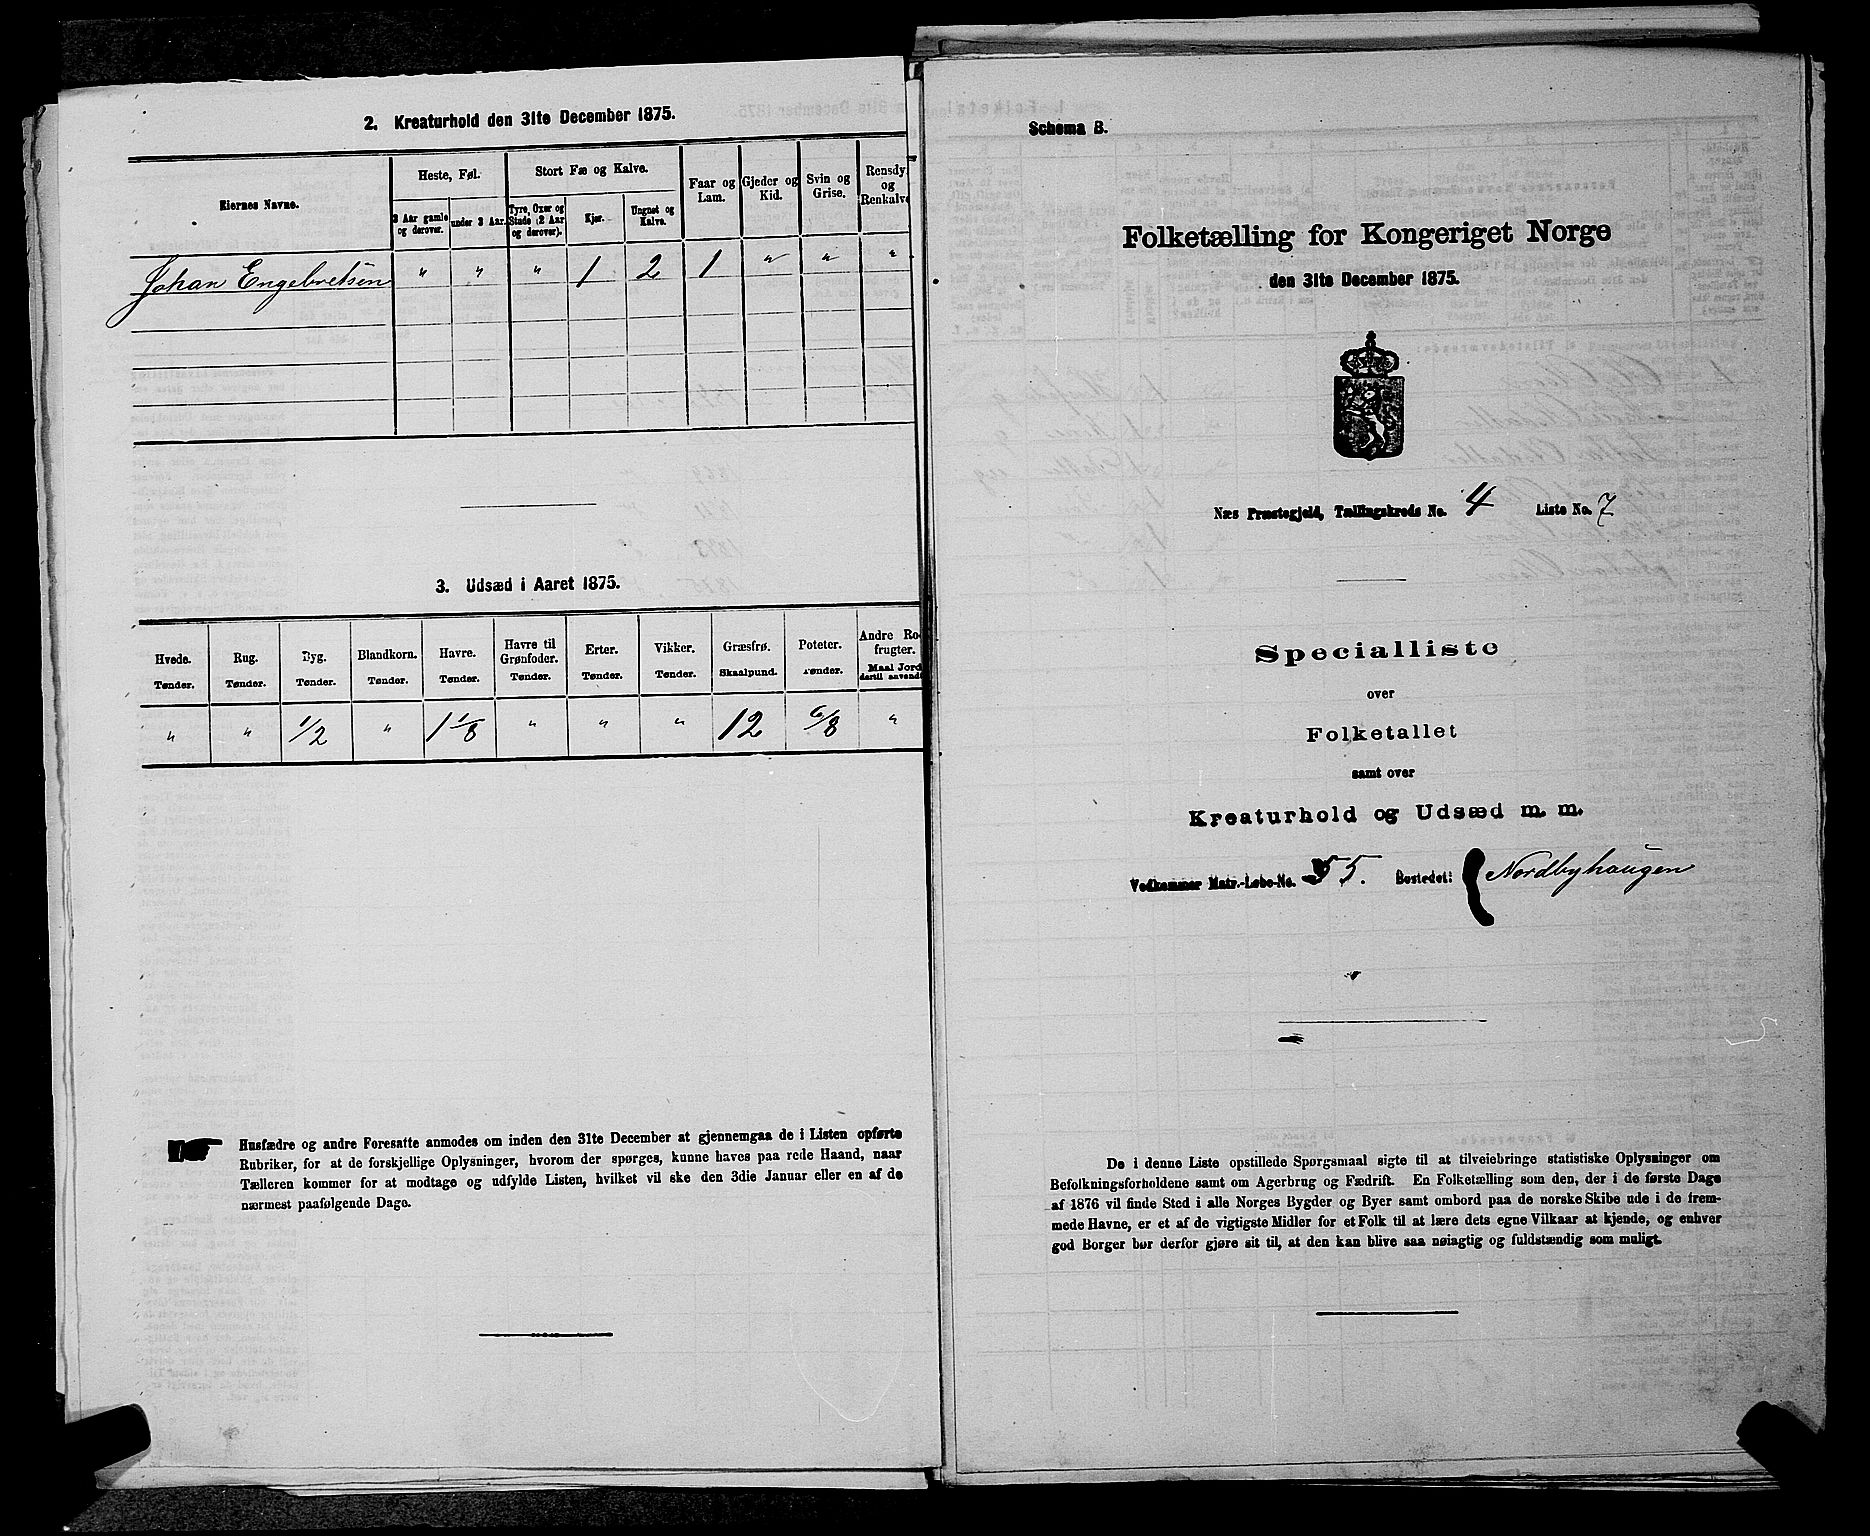 2. Kreaturhold den 31te December 1875.
Eiernes Navne.
Heste, Føl.
Stort Fæ og Kalve.
Faar og Lam.
Gjeder og Kid.
Svin og Grise.
Rensdy. og Renkalve
3 Aar gamle og derover.
under 3 Aar.
Tyre, Oxer og Stude (2 Aar og derover).
Kjør.
Ungnøt og Kalve.
Johan Engebretsen " " " 1 2 1 " " "
3. Udsæd i Aaret 1875.
Hvede. Tønder.
Rug. Tønder.
Byg. Tønder.
Blandkorn. Tønder.
Havre. Tønder.
Havre til Grønfoder. Tønder.
Erter. Tønder.
Vikker. Tønder.
Græsfrø. Skaalpund.
Poteter. Tønder.
Andre Ro- frugter. Maal Jord dertil anvendt
" " 1/2 " 1 1/8 " " " 12 6/8 "
Husfædre og andre Foresatte anmodes om inden den 31te December at gjennemgaa de i Listen opførte
Rubriker, for at de forskjellige Oplysninger, hvorom der spørges, kunne haves paa rede Haand, naar
Tælleren kommer for at modtage og udfylde Listen, hvilket vil ske den 3die Januar eller en af de
nærmest paafølgende Dage.
Schema B.
Folketælling for Kongeriget Norge
den 31te December 1875.
Næs Præstegjeld, Tællingskreds No. 4 Liste No. 7
Specialliste
over
Folketallet
samt over
Kreaturhold og Udsæd m. m.
Vedkommer Matr.-Løbe-No. 55. Bostedet: Nordbyhaugen
De i denne Liste opstillede Spørgsmaal sigte til at tilveiebringe statistiske Oplysninger om
Befolkningsforholdene samt om Agerbrug og Fædrift. En Folketælling som den, der i de første Dage
af 1876 vil finde Sted i alle Norges Bygder og Byer samt ombord paa de norske Skibe ude i de frem-
mede Havne, er et af de vigtigste Midler for et Folk til at lære dets egne Vilkaar at kjende, og enhver
god Borger bør derfor gjøre sit til, at den kan blive saa nøiagtig og fuldstændig som muligt.